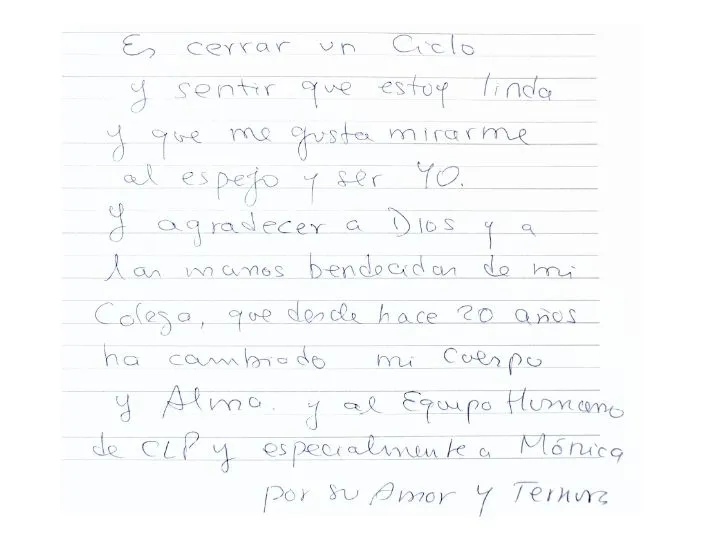 Es cerrar un Ciclo
y sentir que estoy linda
y que me gusta mirarme
al espejo y ser YO.
Y agradecer a Dios y a
las manos bendecidas de mi
Colega, que desde hace 20 años
ha cambiado mi Cuerpo
y Alma. y al Equipo Humano
de CLP y especialmente a Mónica
por su Amor y Ternura